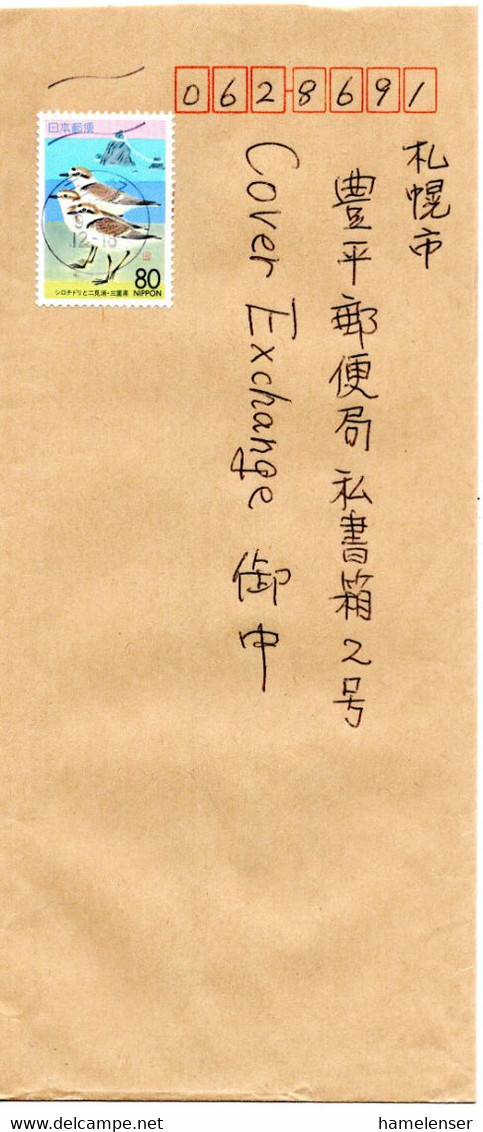 0628691
札幌市
豊平郵便局私書箱2号
Cover Exchange 御中
日本郵便
12-18
80
NIPPON
シロチドリと二見浦・三重県
delcampe.net
hamelenser